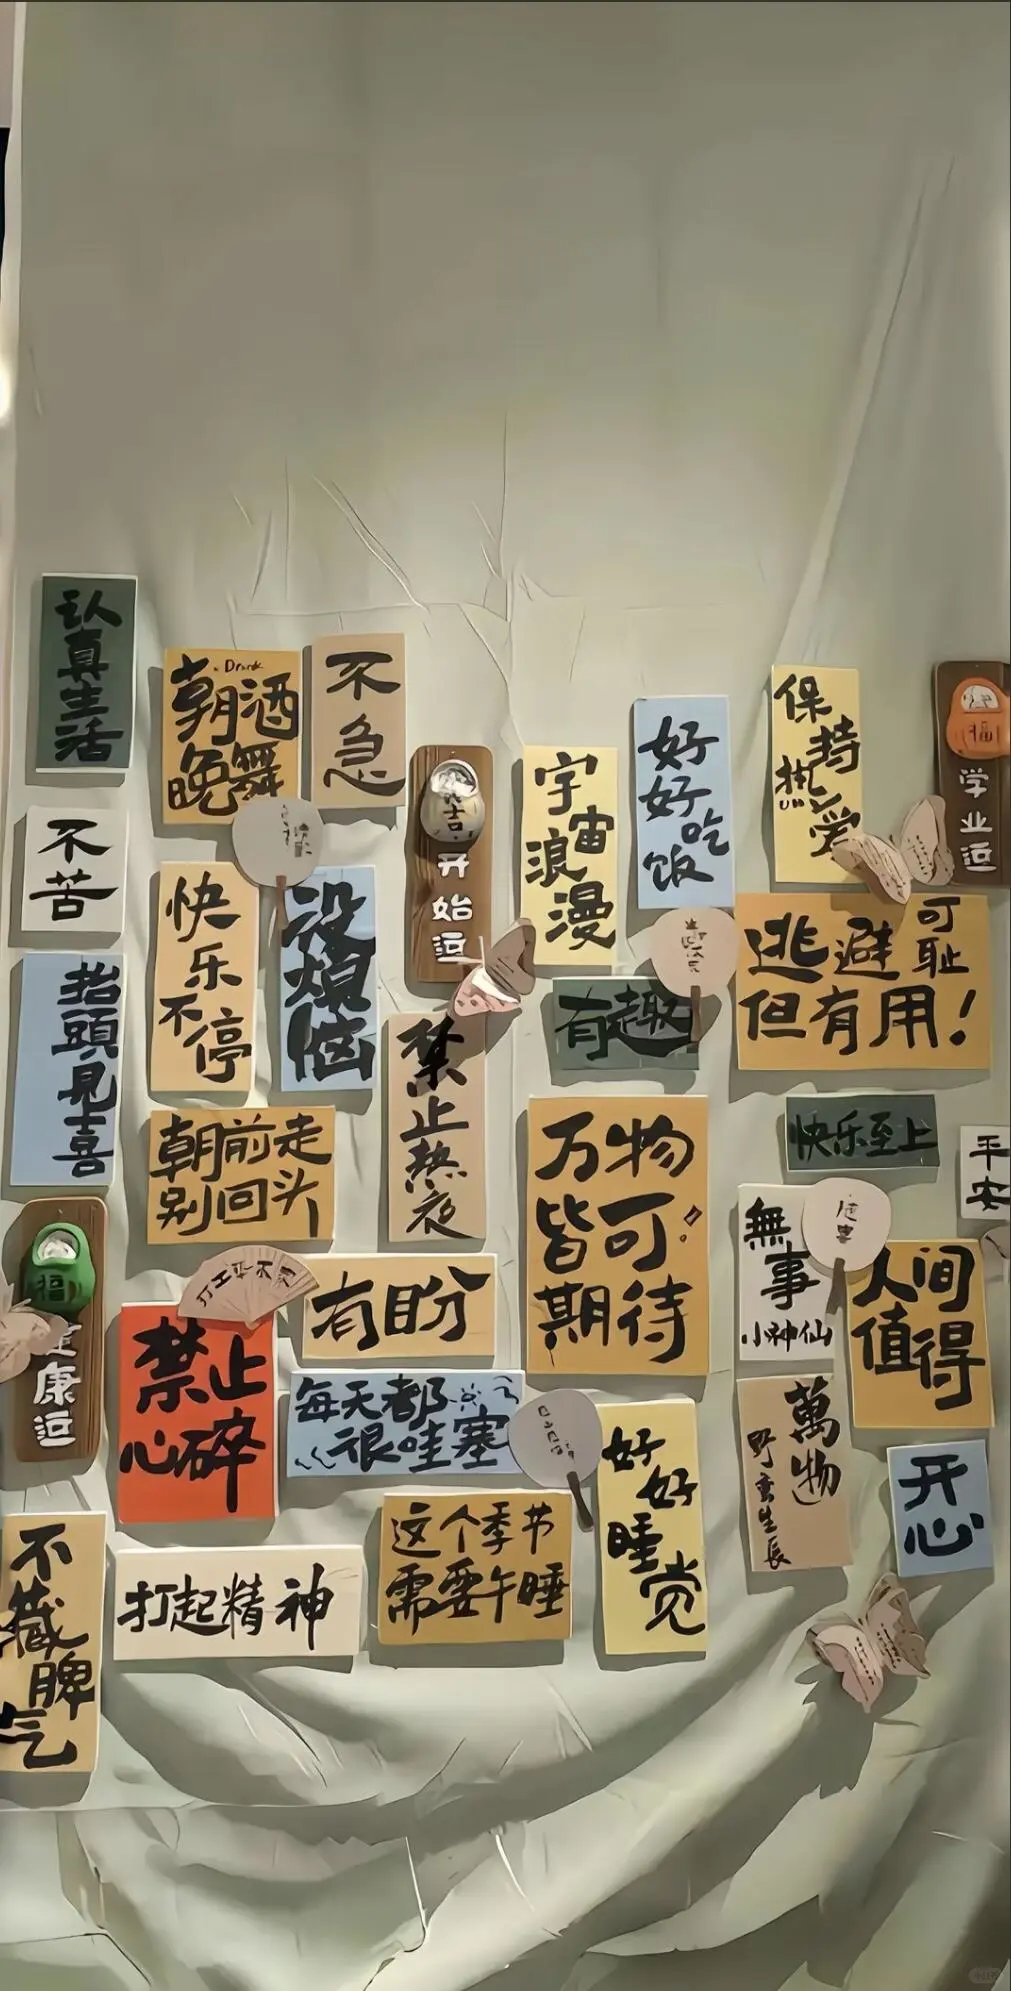 认真生活
Drunk
朝酒
晚舞
不急
不苦
快乐
不停
没烦恼
抬頭見喜
开始逗
宇宙
浪漫
好好
吃饭
保持
热爱
福
学业逗
有趣
逃避可耻
但有用！
禁止熬夜
朝前走
别回头
万物
皆可
期待
快乐至上
平安
無事
小神仙
人间
值得
福
康逗
有盼
禁止
心碎
每天都
很哇塞
好好
睡觉
萬物
野蛮生長
开心
这个季节
需要午睡
打起精神
不藏脾气